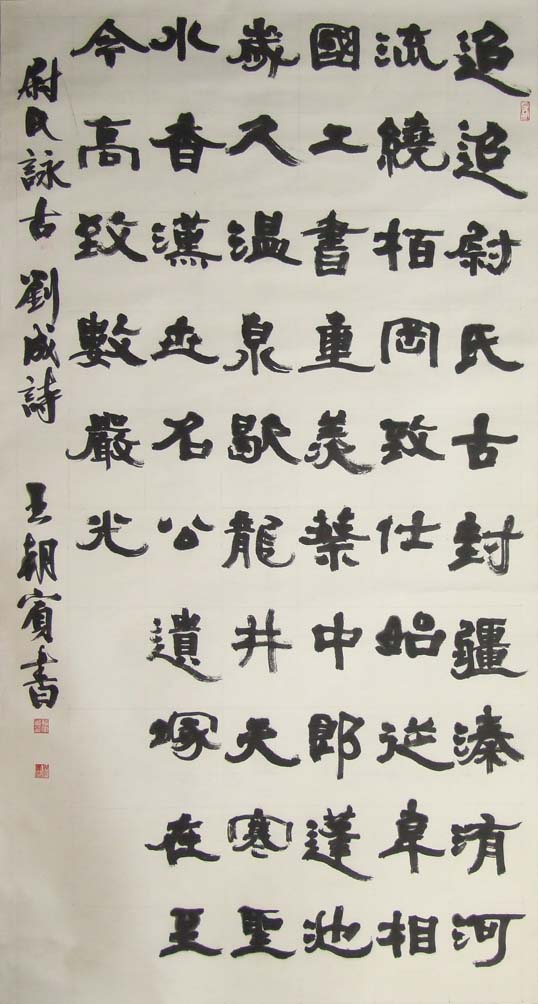 迢迢尉氏古封疆溱洧河
流繞栢岡致仕始從韋相
國工書重羨蔡中郎蓬池
歲久溫泉歇龍井天寒聖
水香漢世名公遺塚在至
今高致數嚴光
尉氏詠古 劉成詩 王朝賓書